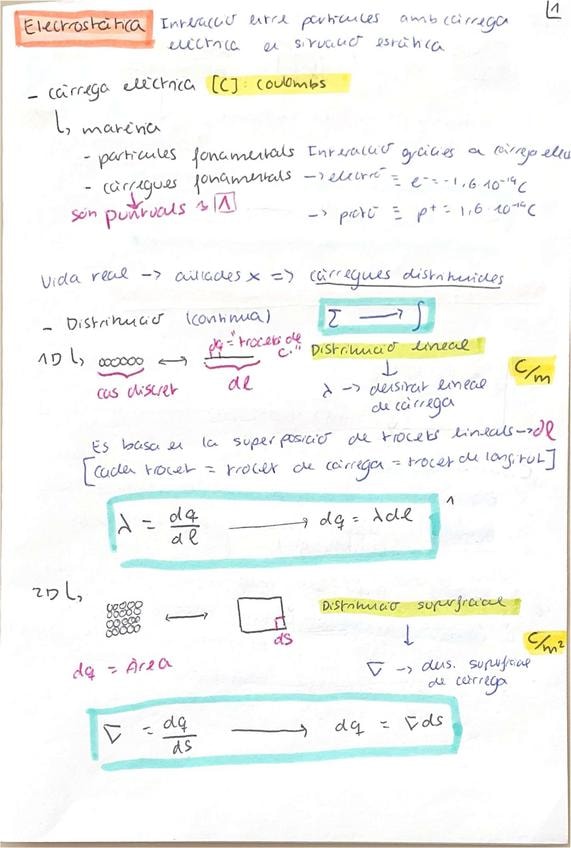 1
Electrostàtica Interacció entre partícules amb càrrega
elèctrica en situació estàtica
- càrrega elèctrica [C]: coulombs
↳ matèria
- partícules fonamentals Interacció gràcies a càrrega elec
- càrregues fonamentals → electró ≡ e⁻ = -1,6·10⁻¹⁹C
són puntuals 1
→ protó ≡ p⁺ = 1,6·10⁻¹⁹C
Vida real → aïllades x => càrregues distribuïdes
- Distribució (contínua) Σ → ∫
1D ↳ ↔ dq = "trocets de C." Distribució lineal
cas discret dl
C/m
λ → densitat lineal
de càrrega
Es basa en la superposició de trocets lineals → dl
[cada trocet = trocet de càrrega = trocet de longitud]
λ = dq/dl → dq = λdl
2D ↳ ↔ Distribució superficial
dS
C/m²
dq = Àrea
∇ → dens. superficial
de càrrega
∇ = dq/ds → dq = ∇ds